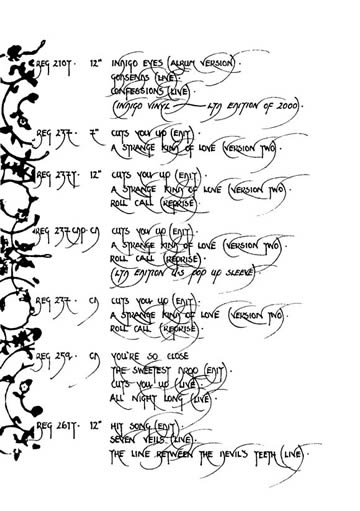 BEG 210T· 12" INDIGO EYES (ALBUM VERSION)·
GODSENDS (LIVE)·
CONFESSIONS (LIVE)·
(INDIGO VINYL — LTD EDITION OF 2000)·
BEG 237· 7" CUTS YOU UP (EDIT)·
A STRANGE KIND OF LOVE (VERSION TWO)·
BEG 237T· 12" CUTS YOU UP (EDIT)·
A STRANGE KIND OF LOVE (VERSION TWO)·
ROLL CALL (REPRISE)·
BEG 237 CDP· CD CUTS YOU UP (EDIT)·
A STRANGE KIND OF LOVE (VERSION TWO)·
ROLL CALL (REPRISE)·
(LTD EDITION U·S POP UP SLEEVE)
BEG 237· CD CUTS YOU UP (EDIT)·
A STRANGE KIND OF LOVE (VERSION TWO)·
ROLL CALL (REPRISE)·
BEG 259· CD YOU'RE SO CLOSE
THE SWEETEST DROP (EDIT)·
CUTS YOU UP (LIVE)·
ALL NIGHT LONG (LIVE)·
BEG 261T· 12" HIT SONG (EDIT)·
SEVEN VEILS (LIVE)·
THE LINE BETWEEN THE DEVIL'S TEETH (LIVE)·